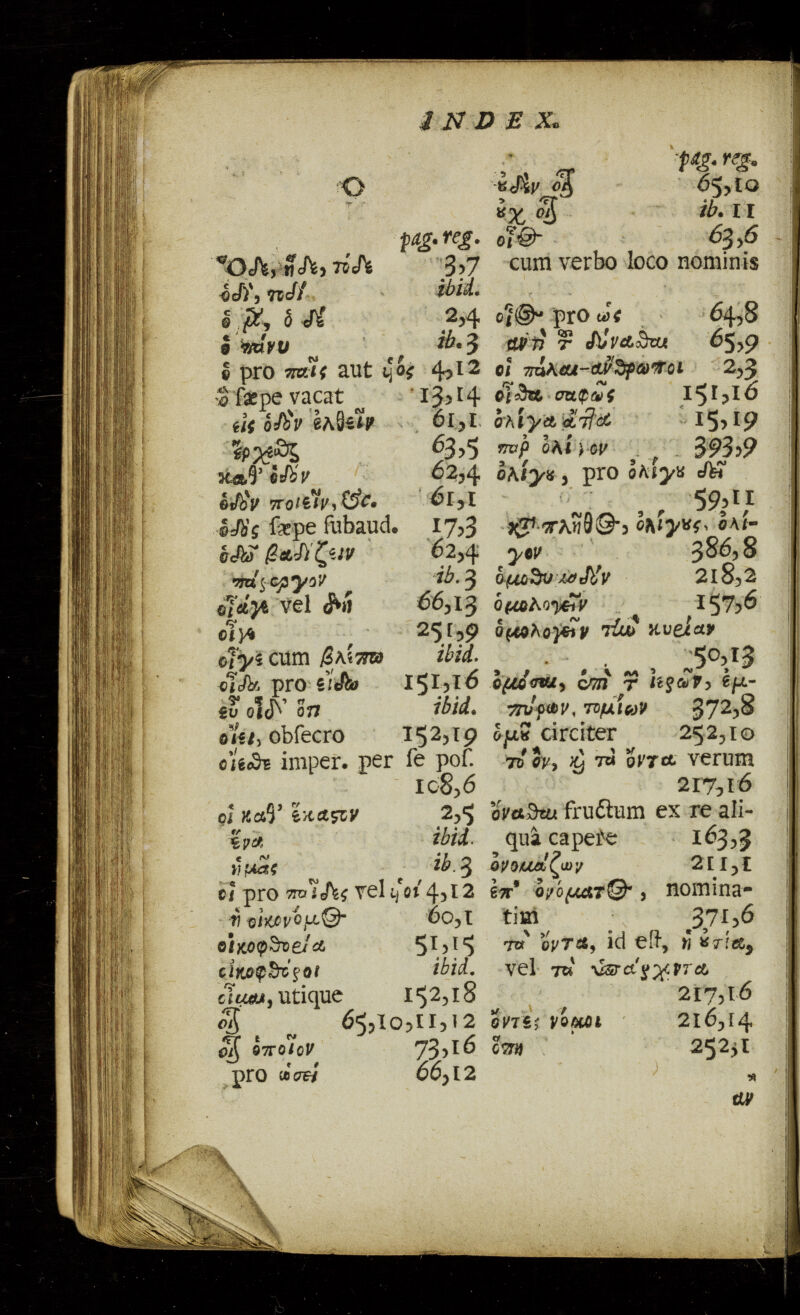 INDEX.
O
pag. reg.
Ὅδε, ἥδε, τόδε 3,7
ὁδί, τοδί ibid.
ὁ μὲν, ὁ δὲ 2,4
ὁ πάνυ ib. 3
ὁ pro παῖς aut ὑὸς 4,12
ὁ ſæpe vacat 13,14
εἰς ὁδὸν ἐλθεῖν 61,1
ἔρχεσθαι 63,5
καθ' ὁδὸν 62,4
ὁδὸν ποιεῖν, &c. 61,1
ὁδὸς ſæpe ſubaud. 17,3
ὁδοῦ βαδίζειν 62,4
ib. 3
vel δὴ 66,13
οἷα 251,9
οἷγε cum βλέπω ibid.
οἶδα pro εἴδω 151,16
εὖ οἶδ' ὅτι ibid.
οἴει, obſecro 152,19
οἴεσθε imper. per ſe poſ.
108,6
οἱ καθ' ἕκαστον 2,5
ἕνα ibid.
ἡμᾶς ib. 3
οἱ pro παῖδες vel ὑοὶ 4,12
ἡ οἰκονόμος 60,1
οἰκοφθορία 51,15
οἰκοφθόροι ibid.
οἶμαι, utique 152,18
οἷον 65,10,11,12
οἷον ὁποῖον 73,16
pro ὡσεὶ 66,12
pag. reg.
οὐδὲν οἷον 65,10
οὐχ οἷον ib. 11
οἷος 63,6
cum verbo loco nominis
οἷος pro ὡς 64,8
ἀντὶ τοῦ δύνασθαι 65,9
οἱ πάλαι ἄνθρωποι 2,3
οἶσθα σαφῶς 151,16
ὀλίγα ἄττα 15,19
παρ' ὀλίγον 393,9
ὀλίγου, pro ὀλίγου δεῖ
59,11
καὶ πλῆθος, ὀλίγους, ὀλί-
γον 386,8
218,2
ὁμολογεῖν 157,6
ὁμολογεῖν τὴν κυρίαν
50,13
ὀμόσαι, ἐπὶ τῶν ἱερῶν, ἐμ-
πύρων, τομίων 372,8
ὁμοῦ circiter 252,10
τὸ ὄν, καὶ τὰ ὄντα verum
217,16
ὄνασθαι fructum ex re ali-
quâ capere 163,3
ὀνομάζων 211,1
ἐπ' ὀνόματος, nomina-
tim 371,6
τὰ ὄντα, id eſt, ἡ οὐσία,
vel τὰ ὑπάρχοντα
217,16
ὄντες νόμοι 216,14
ὅπη 252,1
αν